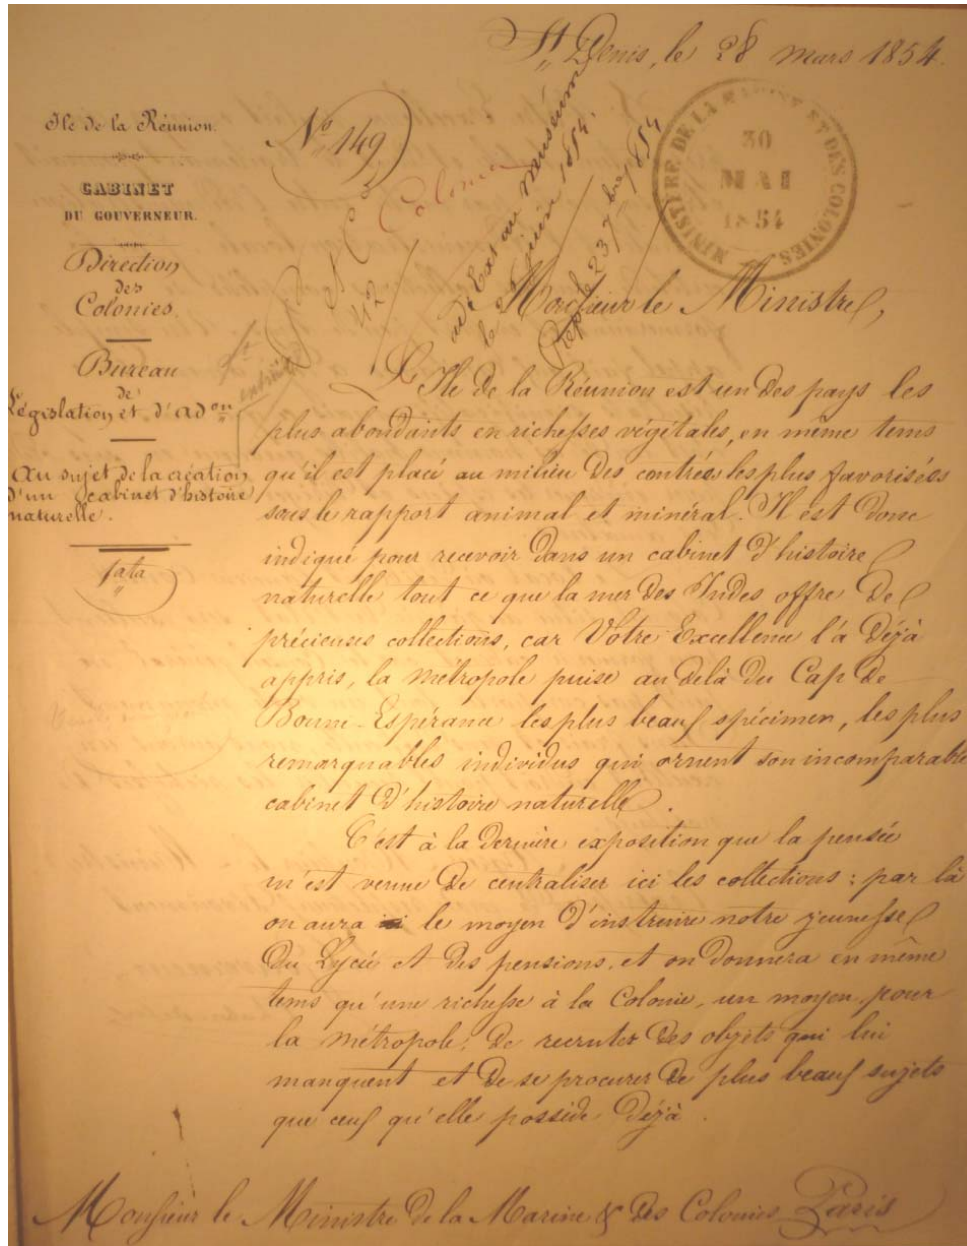 St Denis, le 28 mars 1854.
Ile de la Réunion.
CABINET
DU GOUVERNEUR.
Direction
des
Colonies.
Bureau
de
Législation et d'adon
Au sujet de la création
d'un cabinet d'histoire
naturelle.
No 149
Colonies
42
MINISTÈRE DE LA MARINE ET DES COLONIES.
30
MAI
1854
Monsieur le Ministre,
L'Ile de la Réunion est un des pays les
plus abondants en richesses végétales, en même tems
qu'il est placé au milieu des contrées les plus favorisées
sous le rapport animal et minéral. Il est donc
indiqué pour recevoir dans un cabinet d'histoire
naturelle tout ce que la mer des Indes offre de
précieuses collections, car Votre Excellence l'a déjà
appris, la métropole puise au delà du Cap de
Bonne-Espérance les plus beaux spécimen, les plus
remarquables individus qui ornent son incomparable
cabinet d'histoire naturelle.
C'est à la dernière exposition que la pensée
m'est venue de centraliser ici les collections : par là
on aura le moyen d'instruire notre jeunesse
du Lycée et des pensions, et on donnera en même
tems qu'une richesse à la Colonie, un moyen, pour
la métropole, de recruter des objets qui lui
manquent et de se procurer de plus beaux sujets
que ceux qu'elle possède déjà.
Monsieur le Ministre de la Marine & des Colonies Paris